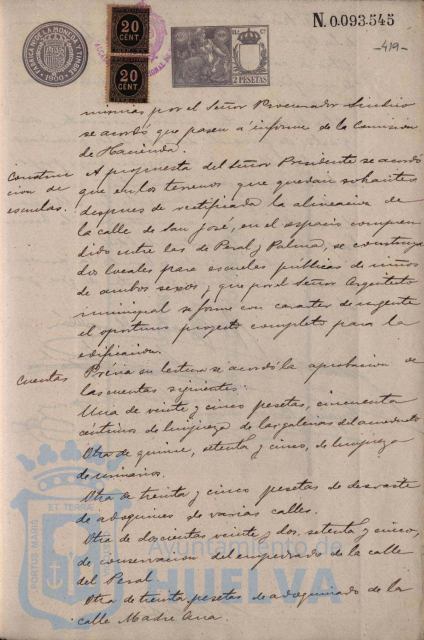 N. 0.093.545
-419-
20
CENT.
20
CENT.
FABRICA DE LA MONEDA Y TIMBRE
1900
2 PESETAS
mismas por el Señor Procurador Sindico
se acordó que pasen á informe de la Comision
de Hacienda.
Construc
cion de
escuelas.
A propuesta del Señor Presidente se acordó
que en los terrenos que quedan sobrantes
despues de rectificada la alineacion de
la calle de San José, en el espacio compren
dido entre las de Peral y Palma, se construyan
dos locales para escuelas públicas de niños
de ambos sexos y que por el Señor Arquitecto
municipal se forme con caracter de urgente
el oportuno proyecto completo para la
edificacion.
Cuentas
Prévia su lectura se acordó la aprobacion de
las cuentas siguientes:
Una de veinte y cinco pesetas, cincuenta
céntimos de limpieza de las galerias del acueducto
Otra de quince, setenta y cinco, de limpieza
de urinarios.
Otra de treinta y cinco pesetas de desvaste
de adoquines de varias calles.
Otra de doscientas veinte y dos, setenta y cinco,
de conservacion del empedrado de la calle
del Peral
Otra de treinta pesetas de adoquinado de la
calle Madre Ana.
PORTUS MARIS
ET TERRAE
Ayuntamiento de
HUELVA